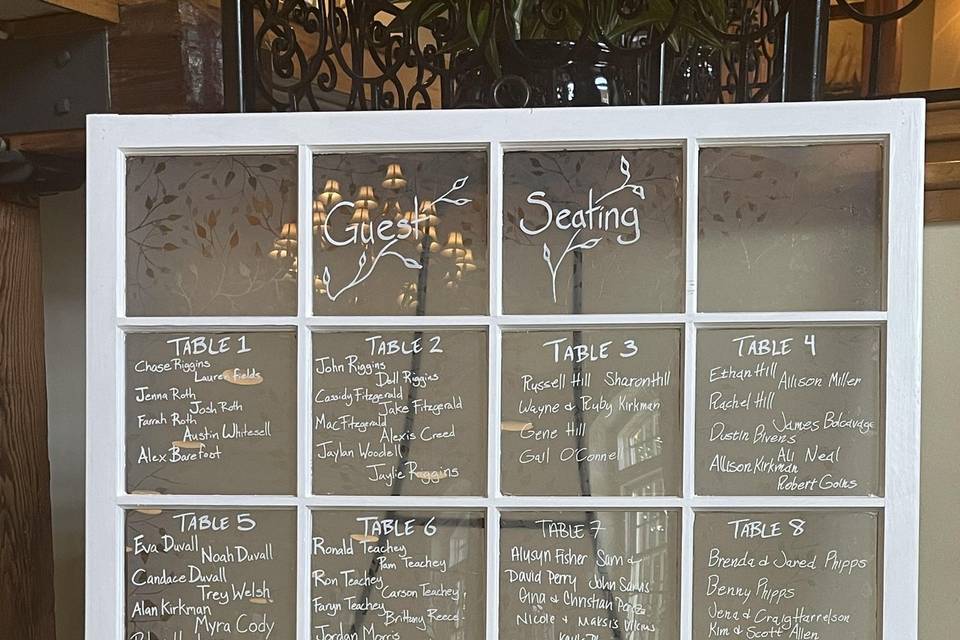 Guest Seating
TABLE 1
Chase Riggins
Lauren Fields
Jenna Roth
Josh Roth
Farrah Roth
Austin Whitesell
Alex Barefoot
TABLE 2
John Riggins
Doll Riggins
Cassidy Fitzgerald
Jake Fitzgerald
Mac Fitzgerald
Alexis Creed
Jaylan Woodell
Jaylie Riggins
TABLE 3
Russell Hill Sharon Hill
Wayne & Ruby Kirkman
Gene Hill
Gail O'Connel
TABLE 4
Ethan Hill
Allison Miller
Rachel Hill
James
Dustin Bivens
Ali Neal
Allison Kirkman
Robert
TABLE 5
Eva Duvall
Noah Duvall
Candace Duvall
Trey Welsh
Alan Kirkman
Myra Cody
TABLE 6
Ronald Teachey
Pam Teachey
Ron Teachey
Carson Teachey
Faryn Teachey
Brittany Reece
Jordan Morris
TABLE 7
Alusyn Fisher Sam &
David Perry John
Gina & Christian Perez
Nicole &
TABLE 8
Brenda & Jared Phipps
Benny Phipps
Jena & Craig Harrelson
Kim & Scott Allen